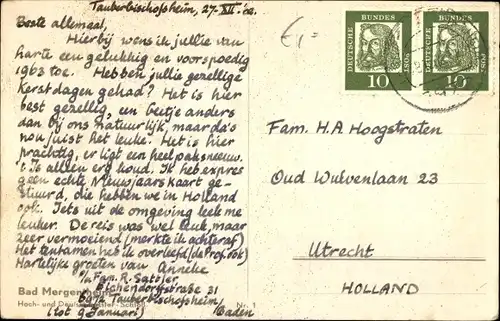 Tauberbischofsheim, 27-XII-'62
Beste allemaal,
Hierbij wens ik jullie van
harte een gelukkig en voorspoedig
1963 toe. Hebben jullie gezellige
kerstdagen gehad? Het is hier
best gezellig, een beetje anders
dan bij ons natuurlijk, maar da's
nou juist het leuke. Het is hier
prachtig, er ligt een heel pak sneeuw.
't Is alleen erg koud. Ik heb expres
geen echte Nieuwjaarskaart ge-
stuurd, die hebben we in Holland
ook. Iets uit de omgeving leek me
leuker. De reis was wel leuk, maar
zeer vermoeiend (merkte ik achteraf)
Het tentamen heb ik overleefd (de Prof. ook)
Hartelijke groeten van Anneke
p/a Fam. R. Sattler
Eichendorffstraße 31
6972 Tauberbischofsheim,
(tot 9 Januari) Baden
Bad Mergentheim
Hoch- und Deutschmeister-Schloß
Nr. 1
DEUTSCHE BUNDESPOST
10
DEUTSCHE BUNDESPOST
10
Fam. H.A. Hoogstraten
Oud Wulvenlaan 23
Utrecht
HOLLAND